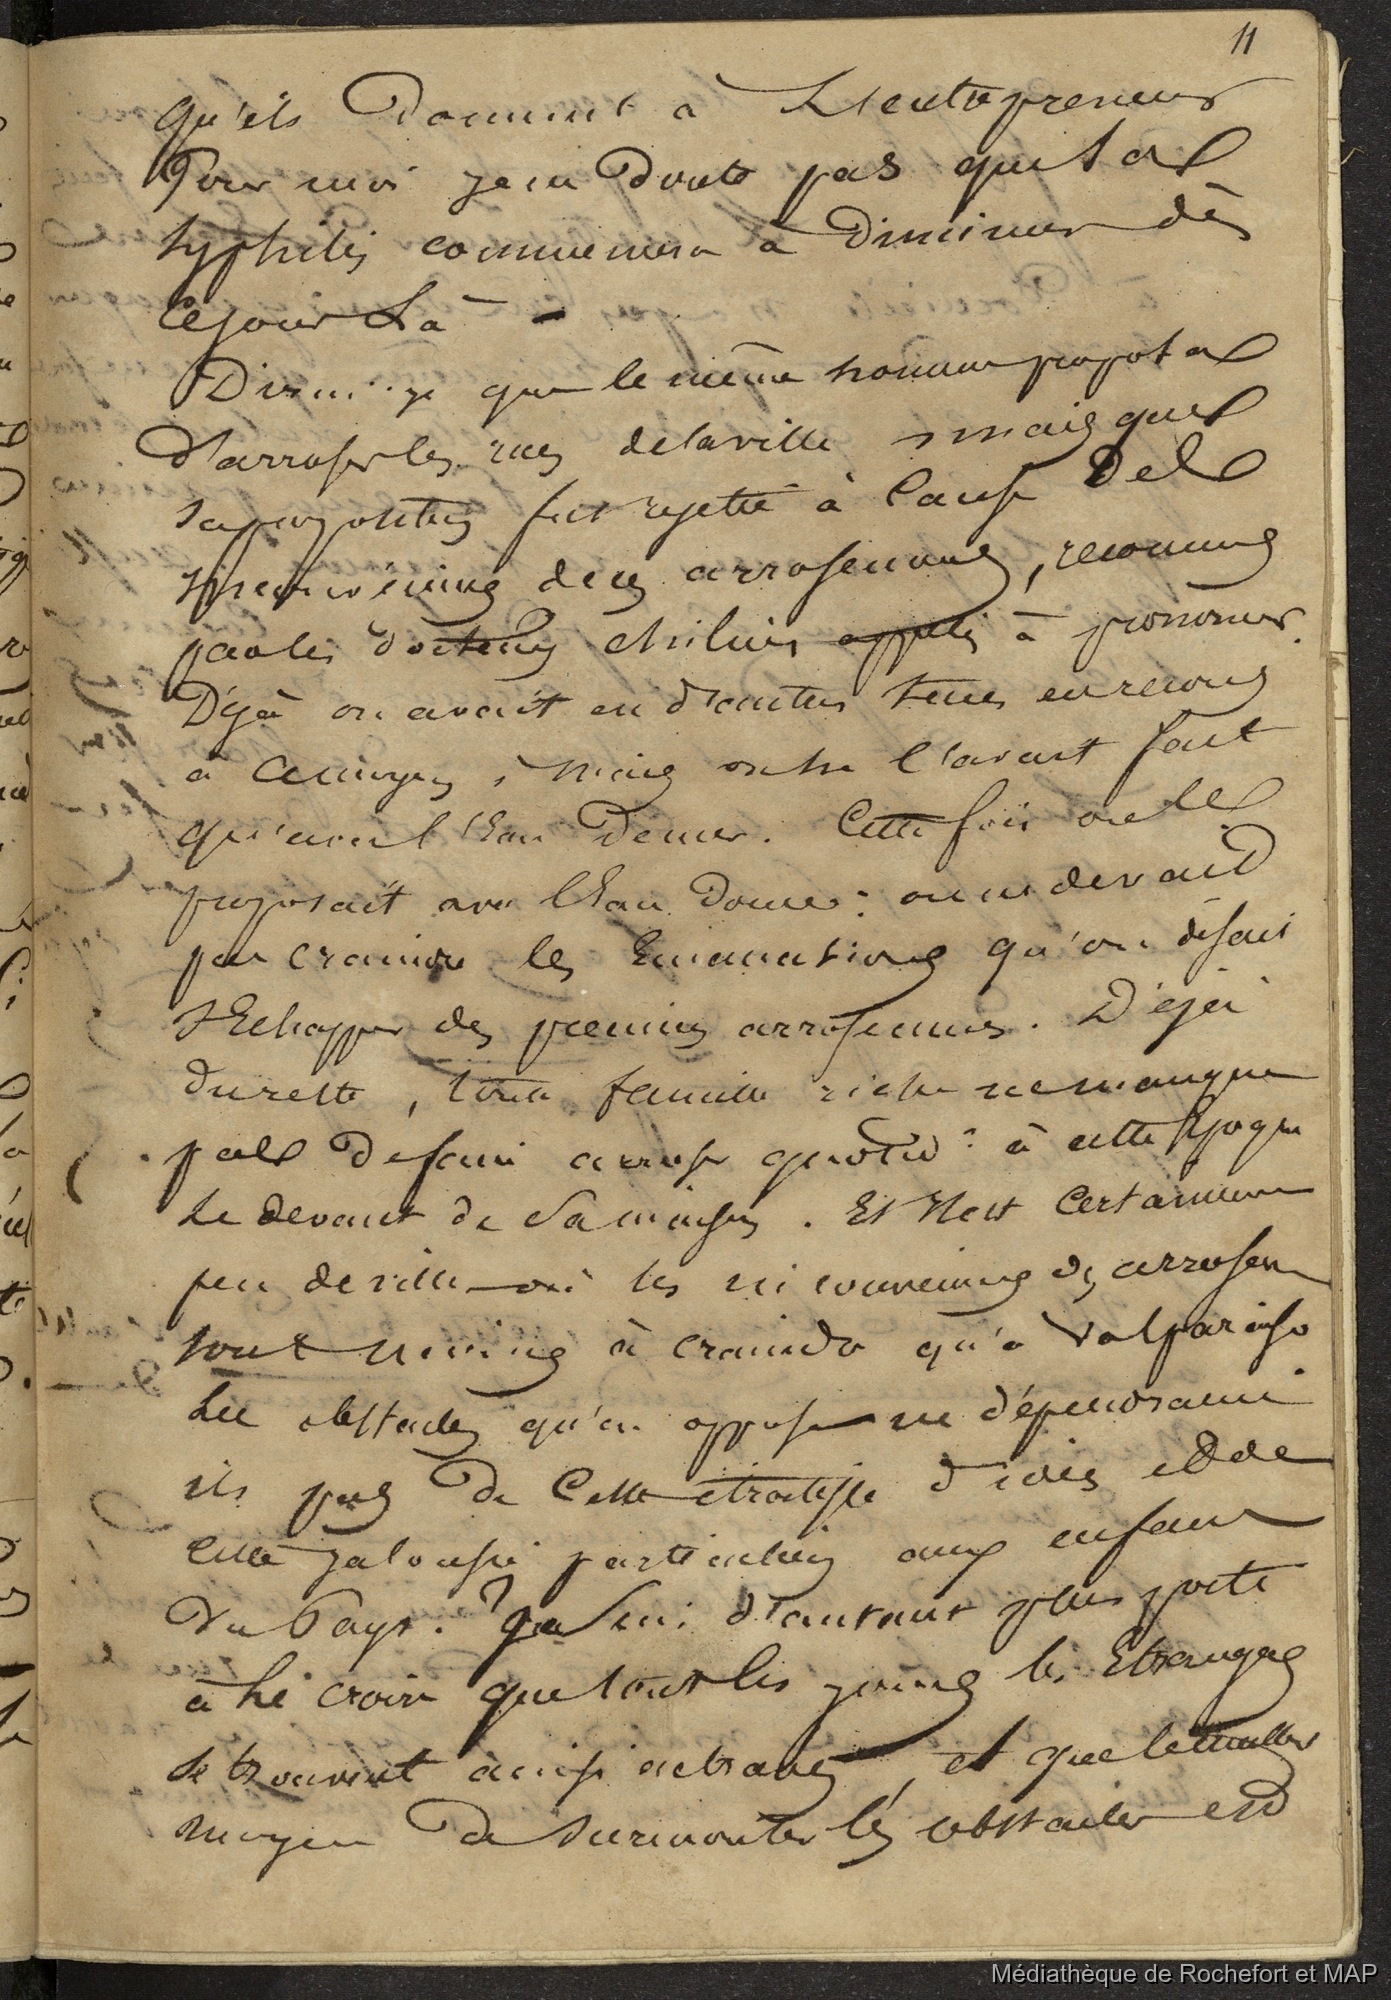 11
qu'ils donnent à L'entrepreneur
Pour moi je ne doute pas que la
syphilis commencera à diminuer dès
ce jour là -
Dirai-je que le même homme proposa
d'arroser les rues de la ville, mais que
sa proposition fut rejettée à cause de
l'inconvénient de ces arrosements, reconnus
par les docteurs chiliens appelés à prononcer.
Déjà on avait en d'autres tems eu recours
à ce moyen, mais on ne l'avait fait
qu'avec l'Eau de mer. Cette fois on le
proposait avec l'Eau douce: on ne devait
pas craindre les Emanations qu'on disait
s'Echapper des premiers arrosements. Déjà
du reste, toute famille riche ne manque
pas de faire arroser quotid.t à cette époque
le devant de sa maison. Et Il est certainement
peu de ville où les inconvéniens des arrosem.
sont moins à craindre qu'à Valparaiso
Les obstacles qu'on oppose ne dépendraient
ils pas de cette étroitesse d'idées et de
cette jalousie particulière aux enfans
du Pays? Je suis d'autant plus porté
à le croire que tous les jours les Etrangers
se trouvent ainsi entravés, et que le meilleur
moyen de surmonter les obstacles est
Médiathèque de Rochefort et MAP